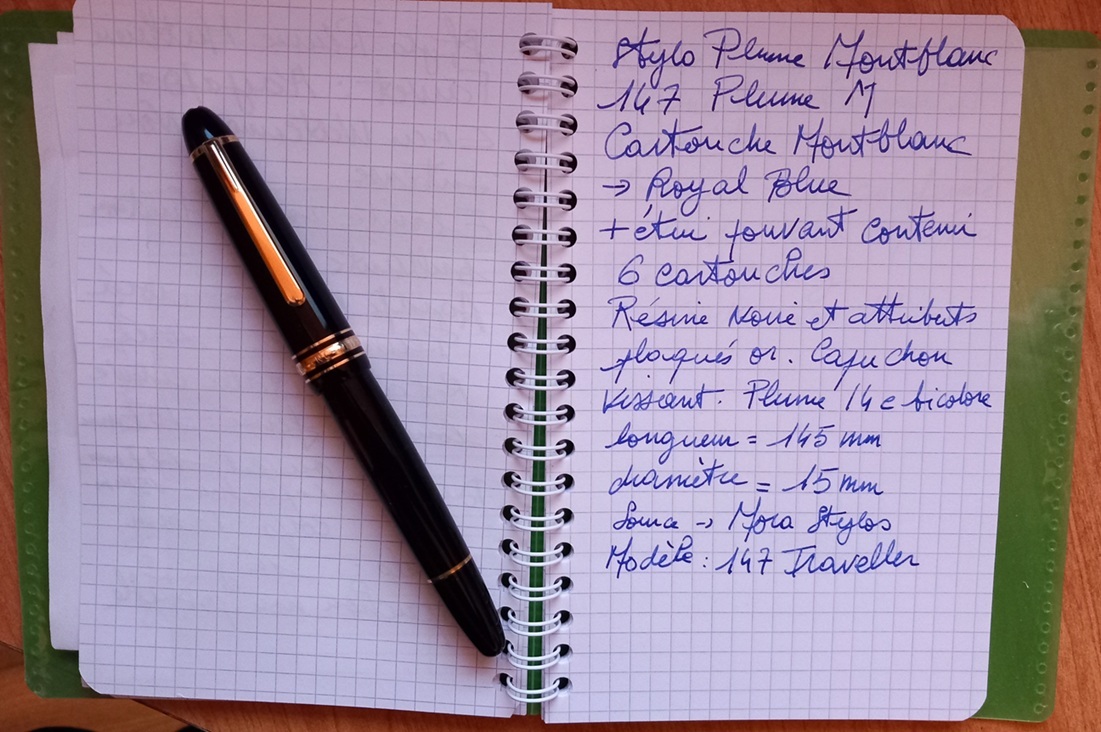 Stylo Plume Montblanc
147 Plume M
Cartouche Montblanc
→ Royal Blue
+ étui pouvant contenir
6 cartouches
Résine noire et attributs
plaqués or. Capuchon
vissant. Plume 14c bicolore
longueur = 145 mm
diamètre = 15 mm
Source → Mora Stylos
Modèle : 147 Traveller